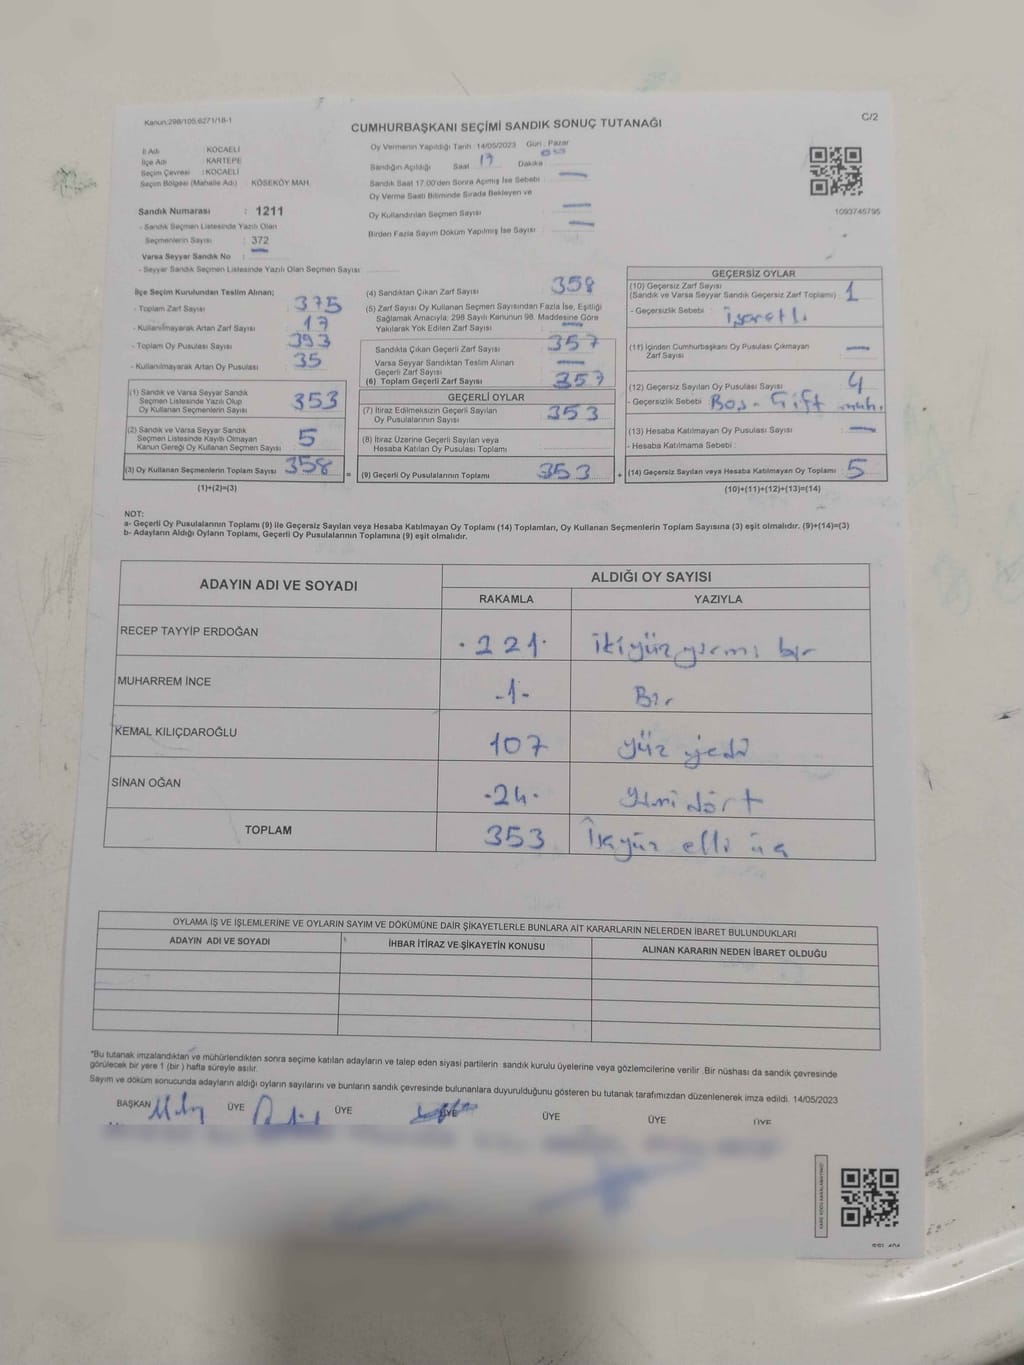 Kanun:298/105,6271/18-1
C/2
CUMHURBAŞKANI SEÇİMİ SANDIK SONUÇ TUTANAĞI
İl Adı : KOCAELİ
İlçe Adı : KARTEPE
Seçim Çevresi : KOCAELİ
Seçim Bölgesi (Mahalle Adı) : KÖSEKÖY MAH.
Sandık Numarası : 1211
- Sandık Seçmen Listesinde Yazılı Olan
Seçmenlerin Sayısı : 372
Varsa Seyyar Sandık No : —
- Seyyar Sandık Seçmen Listesinde Yazılı Olan Seçmen Sayısı
Oy Vermenin Yapıldığı Tarih :14/05/2023 Gün : Pazar
Sandığın Açıldığı Saat 17 Dakika
Sandık Saat 17.00'den Sonra Açımış İse Sebebi : —
Oy Verme Saati Bitiminde Sırada Bekleyen ve
Oy Kullandırılan Seçmen Sayısı —
Birden Fazla Sayım Döküm Yapılmış İse Sayısı —
1093745795
İlçe Seçim Kurulundan Teslim Alınan;
- Toplam Zarf Sayısı : 375
- Kullanılmayarak Artan Zarf Sayısı : 17
- Toplam Oy Pusulası Sayısı : 393
- Kullanılmayarak Artan Oy Pusulası : 35
(1) Sandık ve Varsa Seyyar Sandık
Seçmen Listesinde Yazılı Olup
Oy Kullanan Seçmenlerin Sayısı : 353
(2) Sandık ve Varsa Seyyar Sandık
Seçmen Listesinde Kayıtlı Olmayan
Kanun Gereği Oy Kullanan Seçmen Sayısı : 5
(3) Oy Kullanan Seçmenlerin Toplam Sayısı : 358
(1)+(2)=(3)
=
(4) Sandıktan Çıkan Zarf Sayısı : 358
(5) Zarf Sayısı Oy Kullanan Seçmen Sayısından Fazla İse, Eşitliği
Sağlamak Amacıyla; 298 Sayılı Kanunun 98. Maddesine Göre
Yakılarak Yok Edilen Zarf Sayısı : —
Sandıkta Çıkan Geçerli Zarf Sayısı : 357
Varsa Seyyar Sandıktan Teslim Alınan
Geçerli Zarf Sayısı —
(6) Toplam Geçerli Zarf Sayısı : 357
GEÇERLİ OYLAR
(7) İtiraz Edilmeksizin Geçerli Sayılan
Oy Pusulalarının Sayısı : 353
(8) İtiraz Üzerine Geçerli Sayılan veya
Hesaba Katılan Oy Pusulası Toplamı
(9) Geçerli Oy Pusulalarının Toplamı : 353
+
GEÇERSİZ OYLAR
(10) Geçersiz Zarf Sayısı
(Sandık ve Varsa Seyyar Sandık Geçersiz Zarf Toplamı) : 1
- Geçersizlik Sebebi : İşaretli
(11) İçinden Cumhurbaşkanı Oy Pusulası Çıkmayan
Zarf Sayısı : —
(12) Geçersiz Sayılan Oy Pusulası Sayısı : 4
- Geçersizlik Sebebi : Boş - Çift müh.
(13) Hesaba Katılmayan Oy Pusulası Sayısı : —
- Hesaba Katılmama Sebebi :
(14) Geçersiz Sayılan veya Hesaba Katılmayan Oy Toplamı : 5
(10)+(11)+(12)+(13)=(14)
NOT:
a- Geçerli Oy Pusulalarının Toplamı (9) ile Geçersiz Sayılan veya Hesaba Katılmayan Oy Toplamı (14) Toplamları, Oy Kullanan Seçmenlerin Toplam Sayısına (3) eşit olmalıdır. (9)+(14)=(3)
b- Adayların Aldığı Oyların Toplamı, Geçerli Oy Pusulalarının Toplamına (9) eşit olmalıdır.
ADAYIN ADI VE SOYADI ALDIĞI OY SAYISI
RAKAMLA YAZIYLA
RECEP TAYYİP ERDOĞAN ·221· İkiyüz yirmi bir
MUHARREM İNCE -1- Bir
KEMAL KILIÇDAROĞLU 107 yüz yedi
SİNAN OĞAN ·24· Yirmi dört
TOPLAM 353 elli üç
OYLAMA İŞ VE İŞLEMLERİNE VE OYLARIN SAYIM VE DÖKÜMÜNE DAİR ŞİKAYETLERLE BUNLARA AİT KARARLARIN NELERDEN İBARET BULUNDUKLARI
ADAYIN ADI VE SOYADI İHBAR İTİRAZ VE ŞİKAYETİN KONUSU ALINAN KARARIN NEDEN İBARET OLDUĞU
*Bu tutanak imzalandıktan ve mühürlendikten sonra seçime katılan adayların ve talep eden siyasi partilerin sandık kurulu üyelerine veya gözlemcilerine verilir .Bir nüshası da sandık çevresinde
görülecek bir yere 1 (bir ) hafta süreyle asılır.
Sayım ve döküm sonucunda adayların aldığı oyların sayılarını ve bunların sandık çevresinde bulunanlara duyurulduğunu gösteren bu tutanak tarafımızdan düzenlenerek imza edildi. 14/05/2023
BAŞKAN ÜYE ÜYE ÜYE ÜYE ÜYE ÜYE